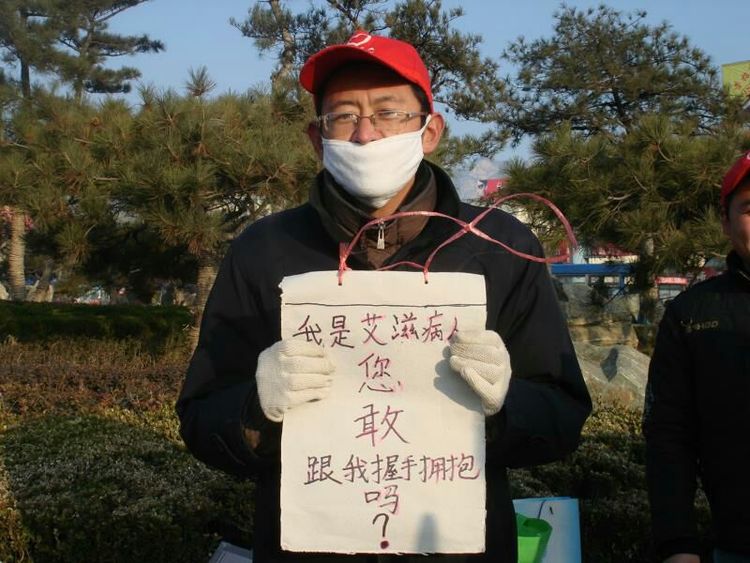 我是艾滋病人
您
敢
跟我握手拥抱
吗
?